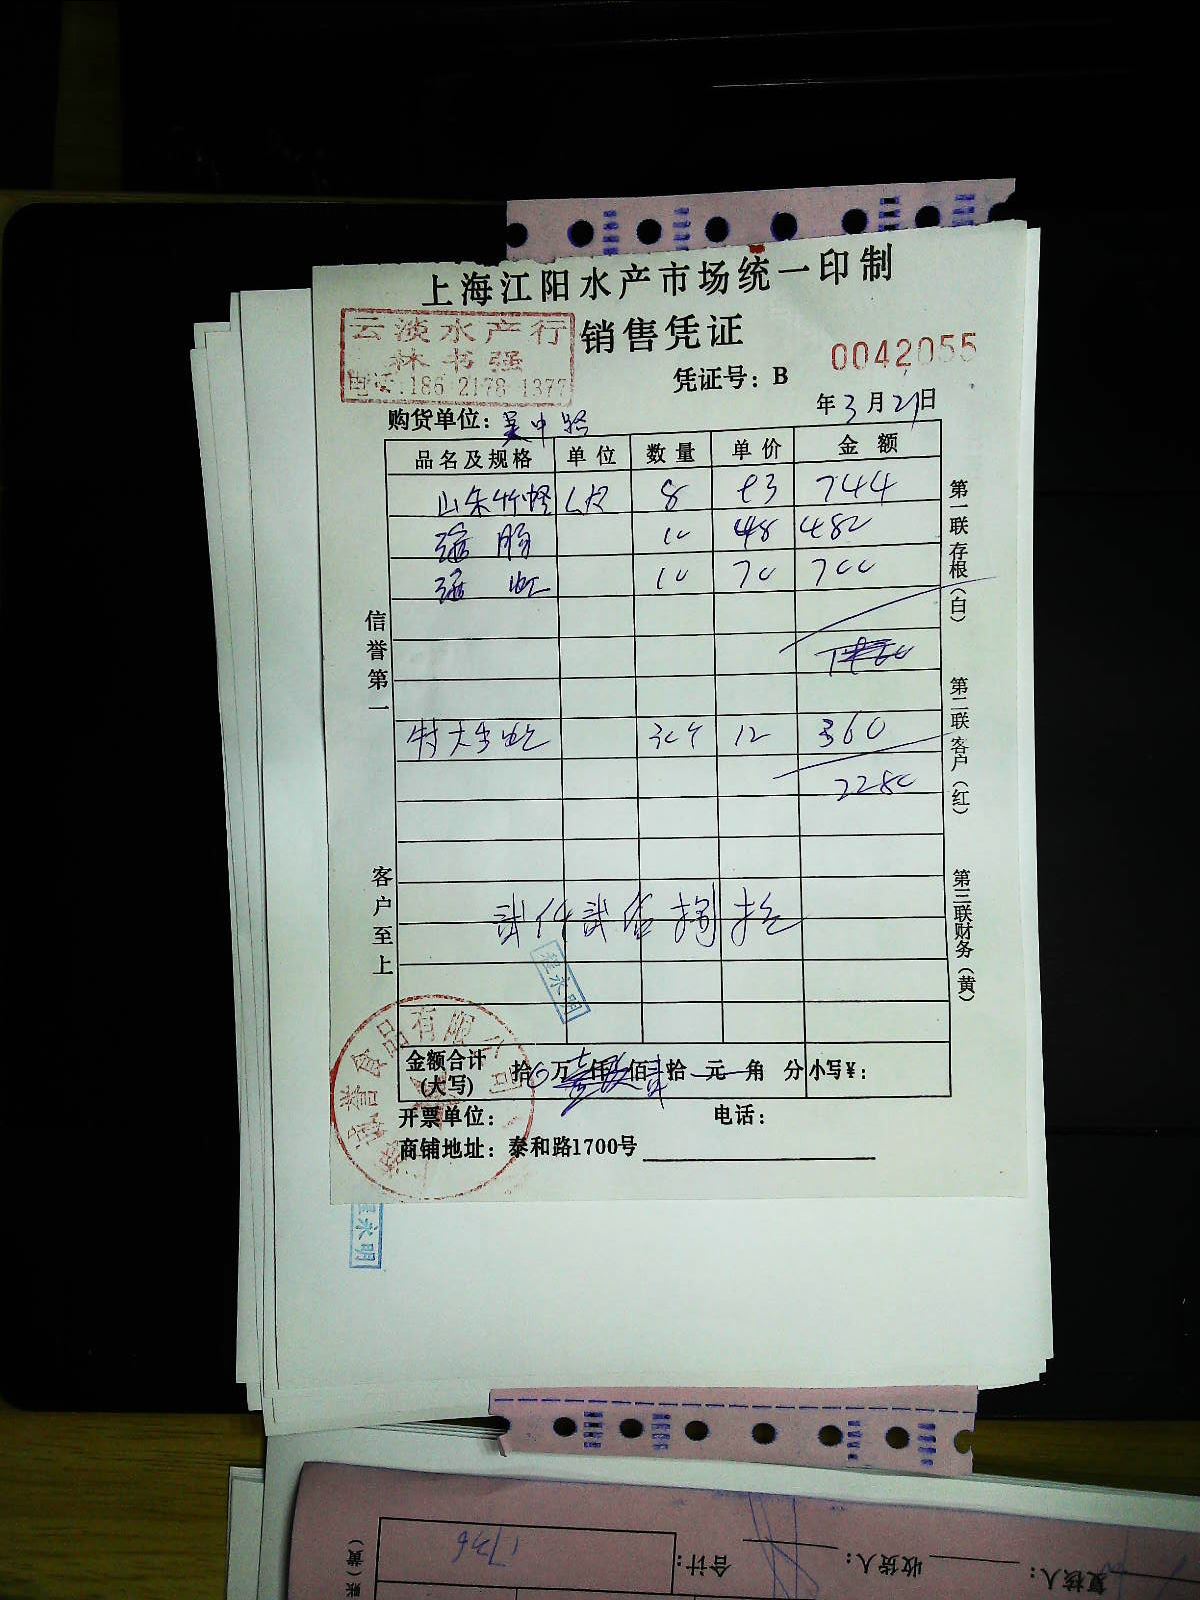 上海江阳水产市场统一印制
销售凭证
云淡水产行
林书强
电话:186 2178 1377
凭证号：B 0042055
年3月21日
购货单位：吴中路
品名及规格 单位 数量 单价 金额
山东竹蛏 8 93 744
10 48 482
10 70 700
特大 虾 30个 12 360
2280
贰仟贰佰捌拾
程永明
金额合计
(大写)
拾 万 仟 佰 拾 元 角 分 小写¥：
开票单位： 电话：
商铺地址：泰和路1700号
信誉第一
客户至上
第一联 存根（白）
第二联 客户（红）
第三联 财务（黄）
食品有限公司
程永明
1736
合计：
收货人：
复核人：
账（黄）